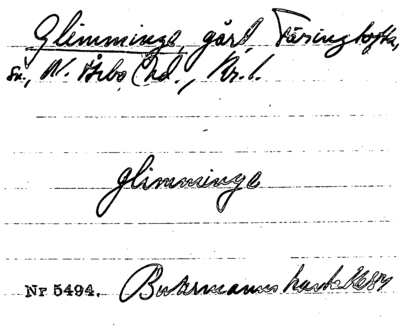 Glimminge, gård, Färingtofta,
sn., N. Åsbo hd., Kr. l.
glimminge
Nr 5494. Buhrmanns karta 1684